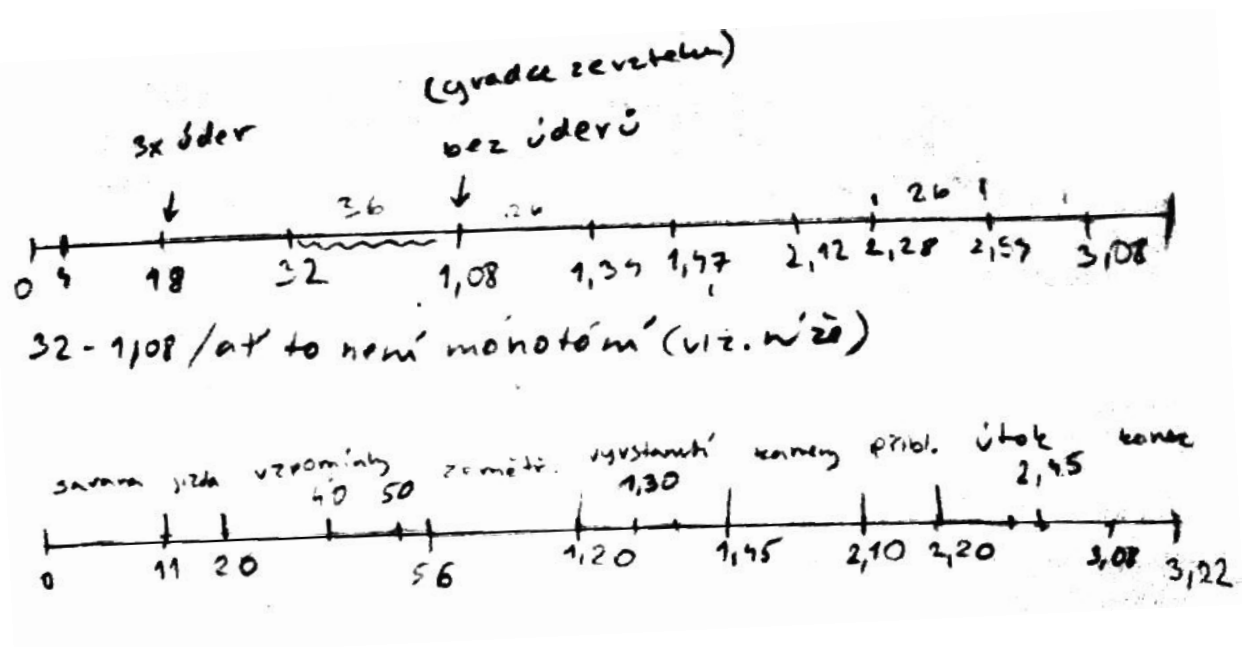 (gradace ze vzteku)
3x úder
bez úderů
36 26 26
0 4 18 32 1,08 1,34 1,47 2,12 2,28 2,54 3,08
32 - 1,08 / ať to není monotóní (viz. níže)
savana jízda vzpomínky zemětř. vyvstanutí kameny přibl. útok konec
40 50 1,30 2,45
0 11 20 56 1,20 1,45 2,10 2,20 3,08 3,22